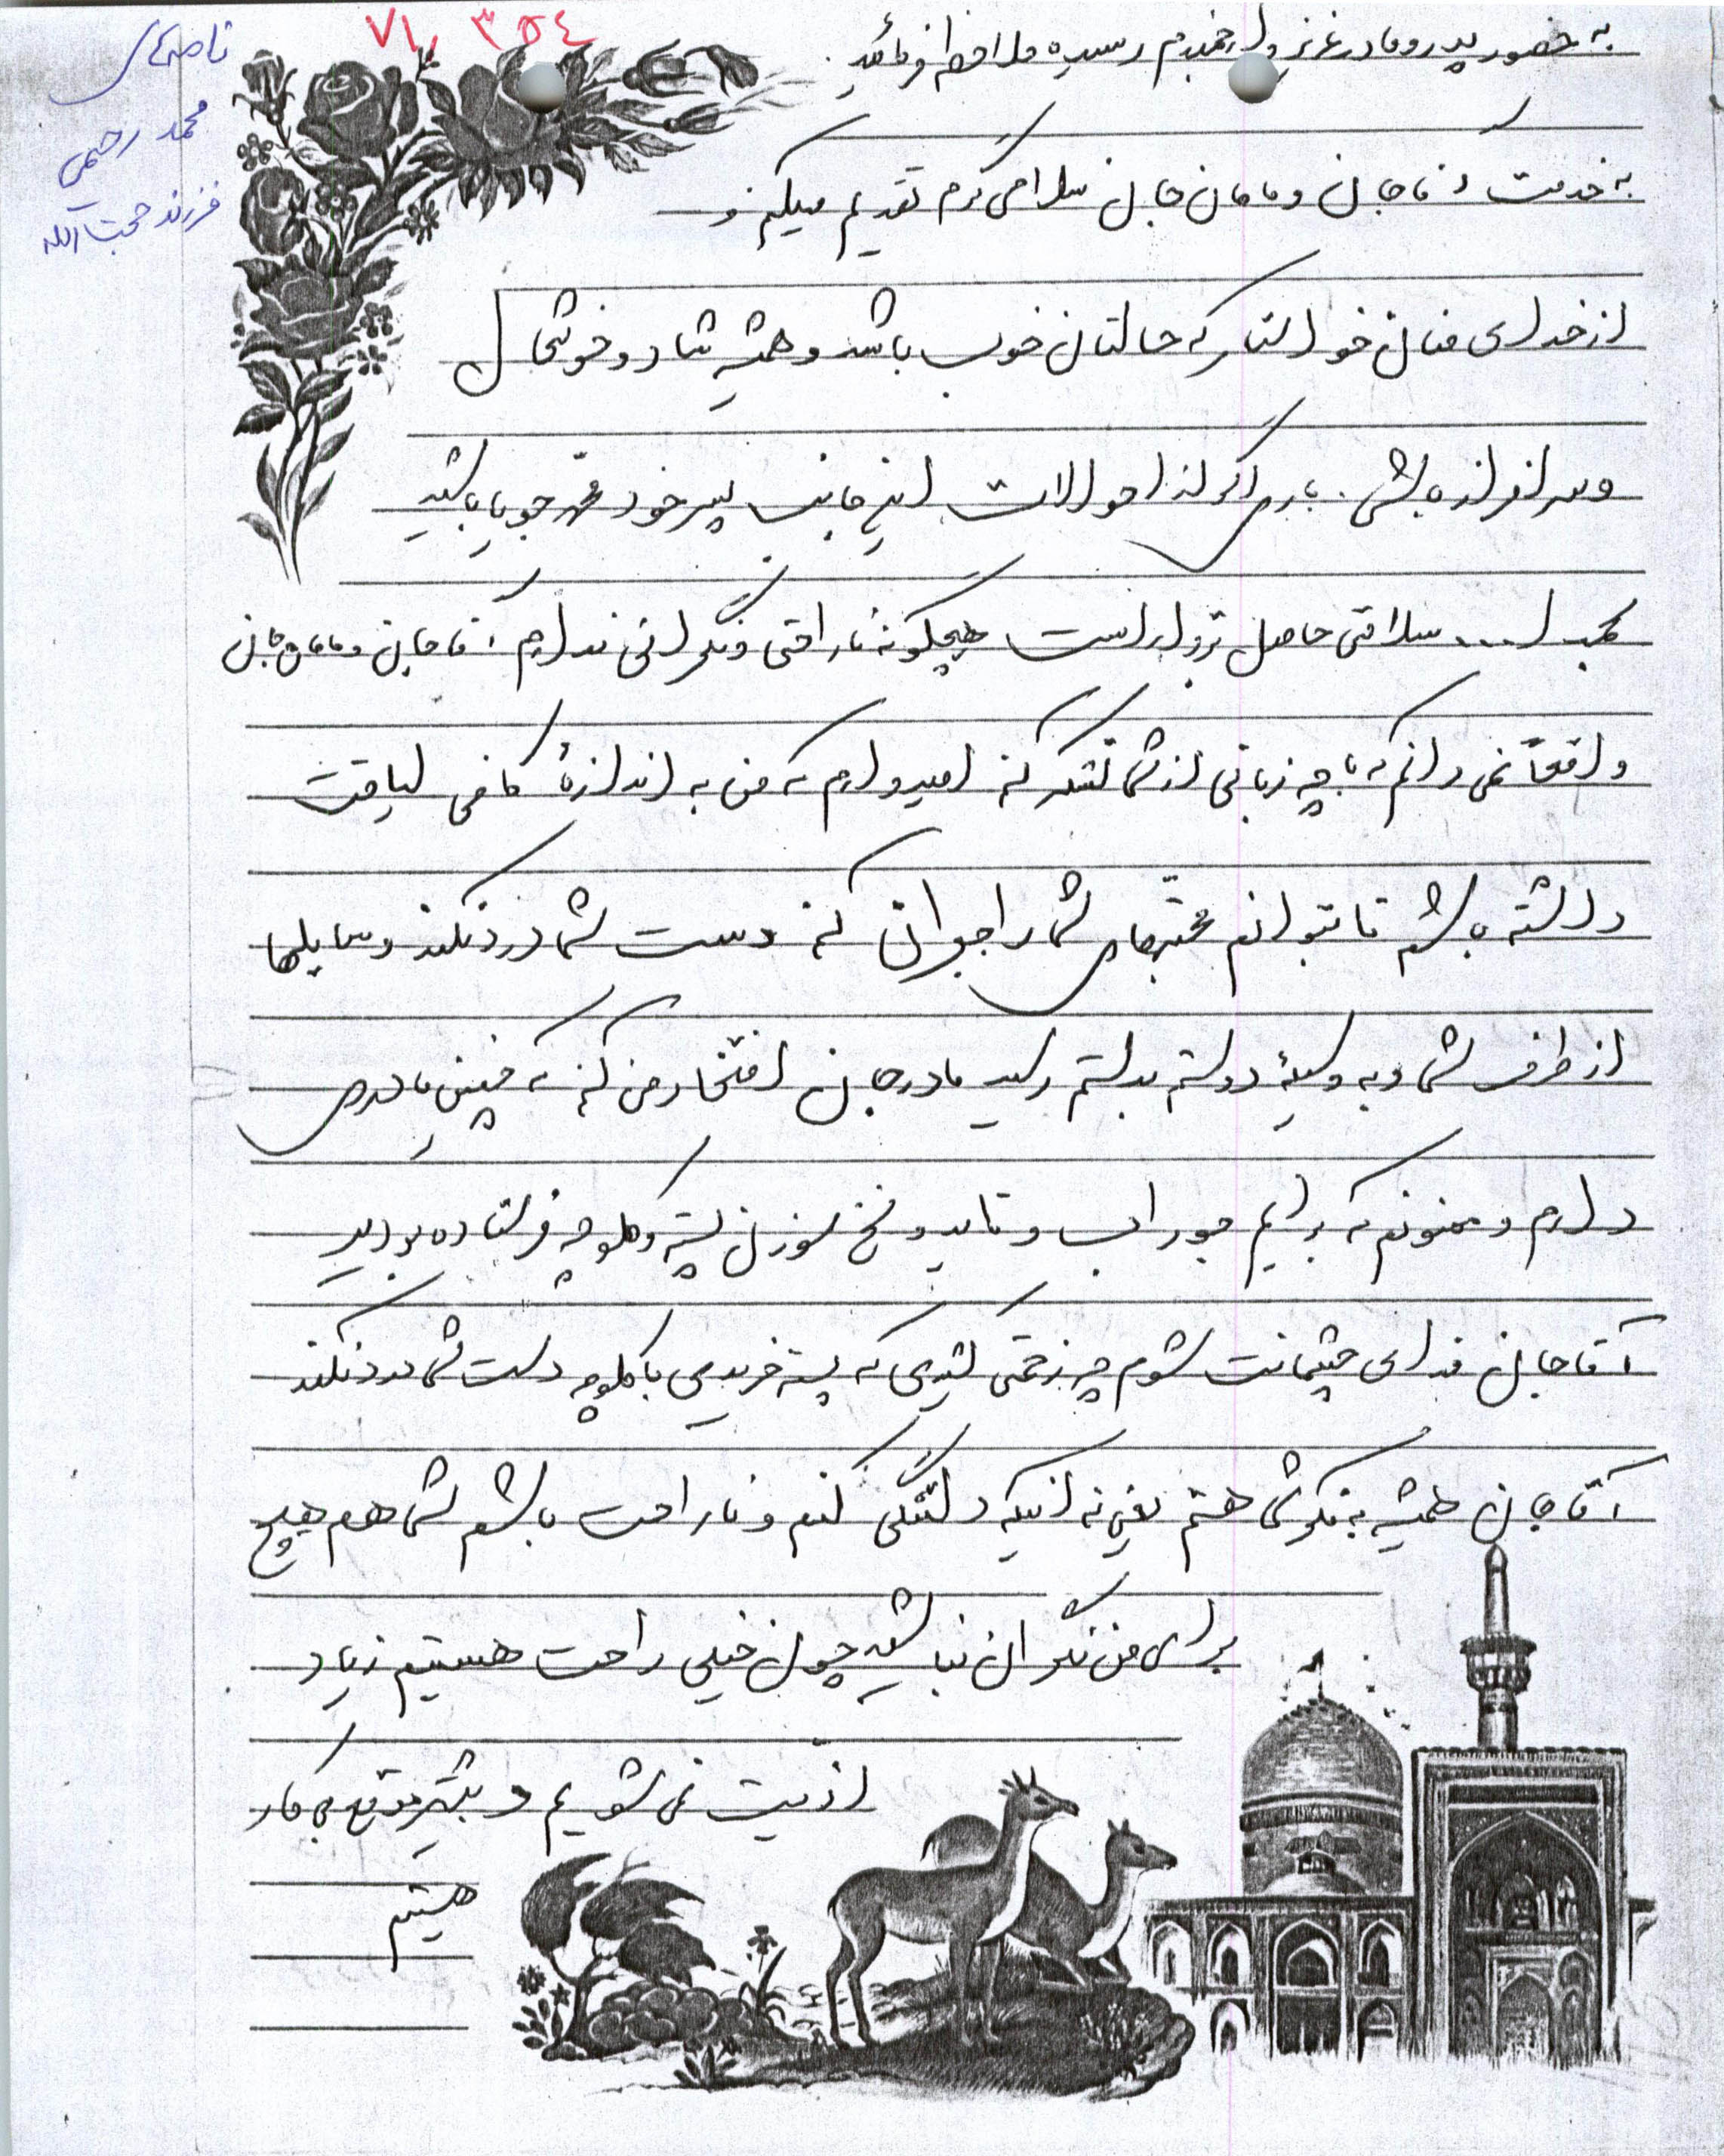 ۷۱٫ ۳۵۴
نامه‌های
محمد رحیمی
فرزند حجت‌الله
به حضور پدر و مادر عزیز و ارجمندم رسیده ملاحظه فرمائید.
به خدمت آقاجان و مامان جان سلامی گرم تقدیم میکنم و
از خدای منان خواستارم که حالتان خوب باشد و همیشه شاد و خوشحال
و سرافراز باشی. باری اگر از احوالات اینجانب پسر خود محمد جویا باشید
بحمد ا... سلامتی حاصل و برقرار است هیچگونه ناراحتی و نگرانی ندارم آقاجان و مامان جان
واقعاً نمی دانم که با چه زبانی از شما تشکر کنم امیدوارم که من به اندازهٔ کافی لیاقت
داشته باشم تا بتوانم محبتهای شما را جبران کنم دست شما درد نکند وسایلها
از طرف شما و به وسیلهٔ دوستم بدستم رسید مادر جان افتخار می کنم که چنین مادری
دارم و ممنونم که برایم جوراب و تاید و نخ سوزن پسته و کلوچه فرستاده بودید
آقاجان فدای چشمانت شوم چه زحمتی کشیدی که پسته خریدی با کلوچه دست شما درد نکند
آقا جان همیشه به فکر شما هستم یعنی نه اینکه دلتنگی کنم و ناراحت باشم شما هم هیچ
برای من نگران نباشید چون خیلی راحت هستیم زیاد
اذیت نمی شویم و بیشتر موقع بی کار
هستیم